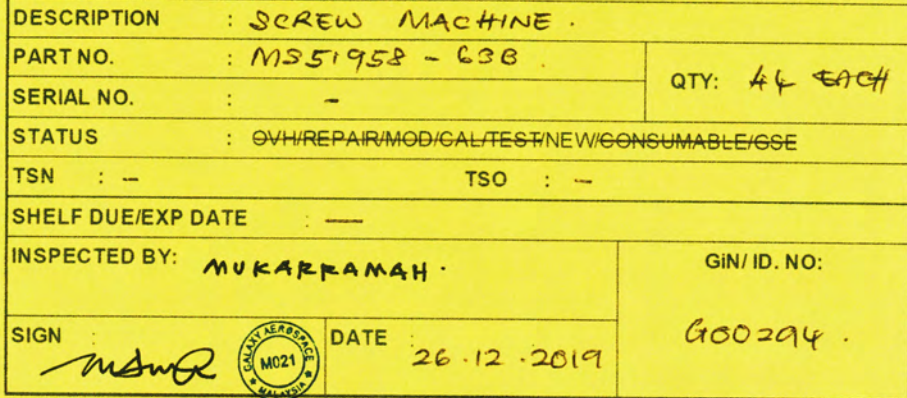 DESCRIPTION : SCREW MACHINE.
PART NO. : MS51958 - 63B.
QTY: 44 EACH
SERIAL NO. : -
STATUS : OVH/REPAIR/MOD/CAL/TEST/NEW/CONSUMABLE/GSE
TSN : - TSO : -
SHELF DUE/EXP DATE : -
INSPECTED BY: MUKARRAMAH.
GIN/ ID. NO:
G00294.
SIGN :
GALAXY AEROSPACE
M021
MALAYSIA
DATE : 26.12.2019